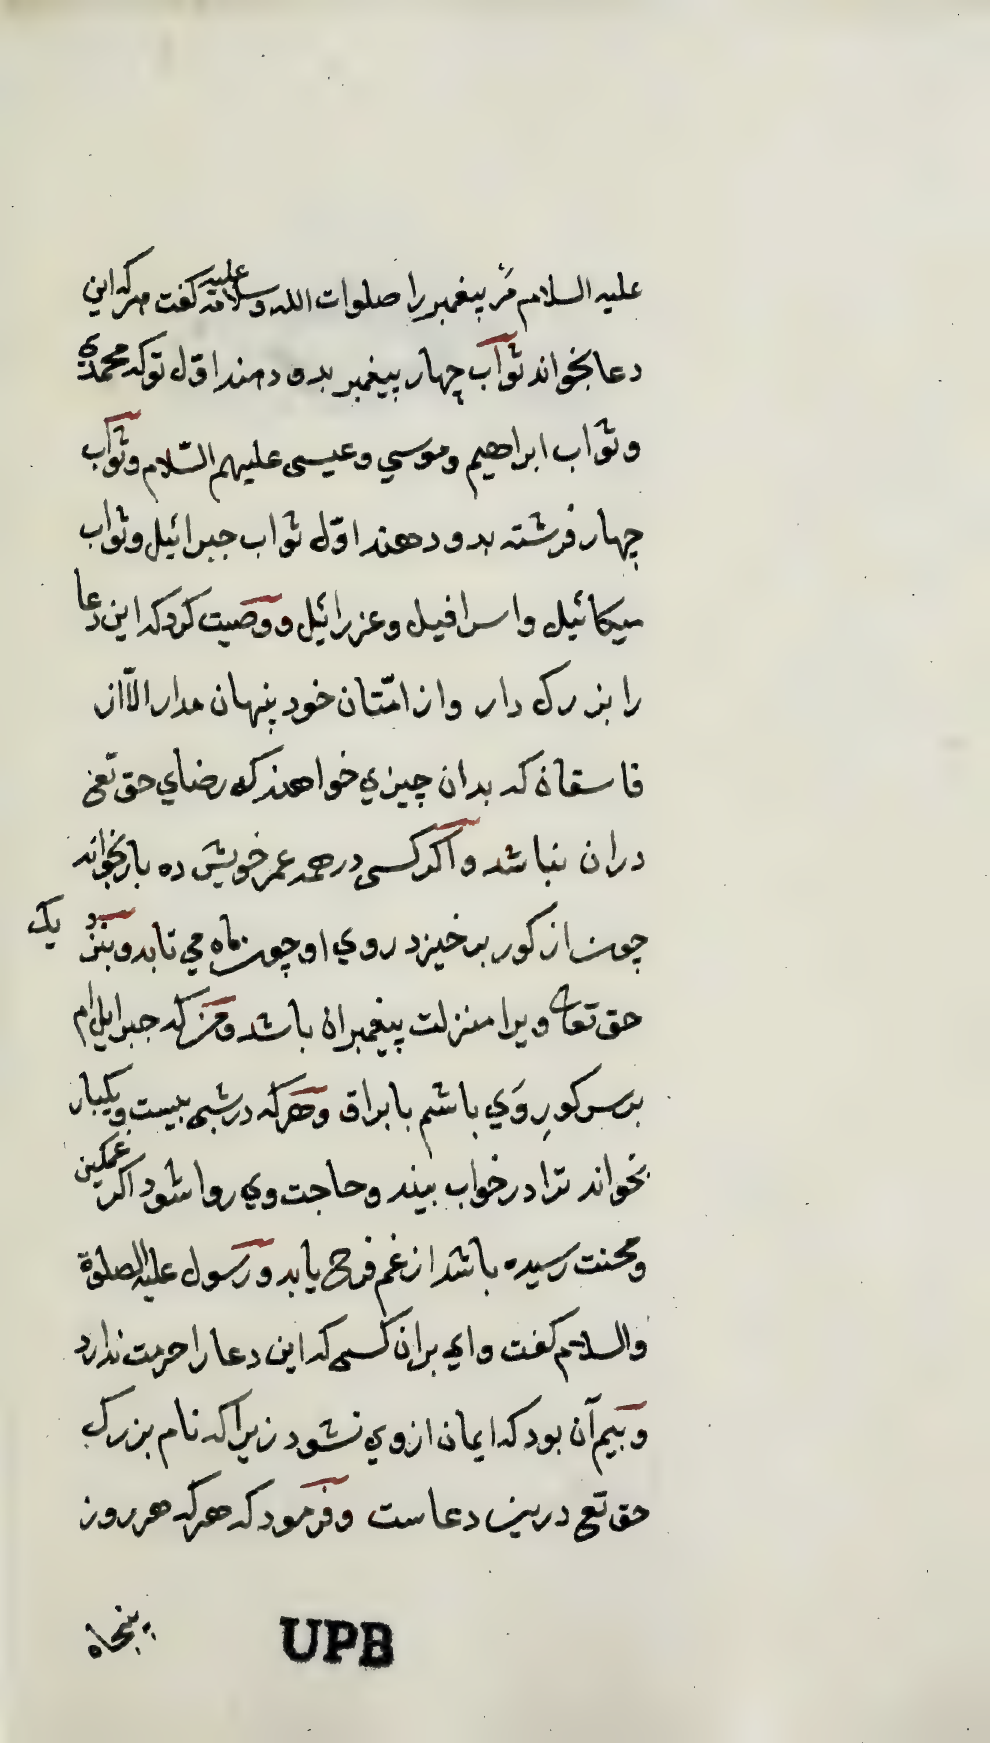 علیه السلام مَر پیغمبر را صلوات الله وسلامه علیه گفت هر که این
دعا بخواند ثواب چهار پیغمبر بدو دهند اوّل تو که محمدی
وثواب ابراهیم وموسی وعیسی علیهم السّلام وثواب
چهار فرشته بدو دهند اوّل ثواب جبرائیل وثواب
میکائیل واسرافیل وعزرائیل ووصیت کرد که این دعا
را بزرک دار واز امّتان خود پنهان مدار الّا از
فاسقان که بدان چیزی خواهند که رضای حق تع
دران نباشد واکر کسی در همه عمر خویش ده بار بخواند
چون از کور برخیزد روی او چون ماه می تابد وبنزد یک
حق تعا ویرا منزلت پیغمبران باشد ومن که جبرایل ام
برسر کورِ وَی باشم بابراق وهرکه در شبی بیست ویکبار
بخواند ترا در خواب بیند وحاجت وی روا شود اکر غمکین
ومحنت رسیده باشد از غم فرح یابد ورسول علیه الصلوة
والسلام کفت وای بران کسی که این دعا را حرمت ندارد
وبیم آن بود که ایمان ازوی نشود زیرا که نام بزرک
حق تع درین دعاست وفرمود که هرکه هر روز
پنجاه
UPB